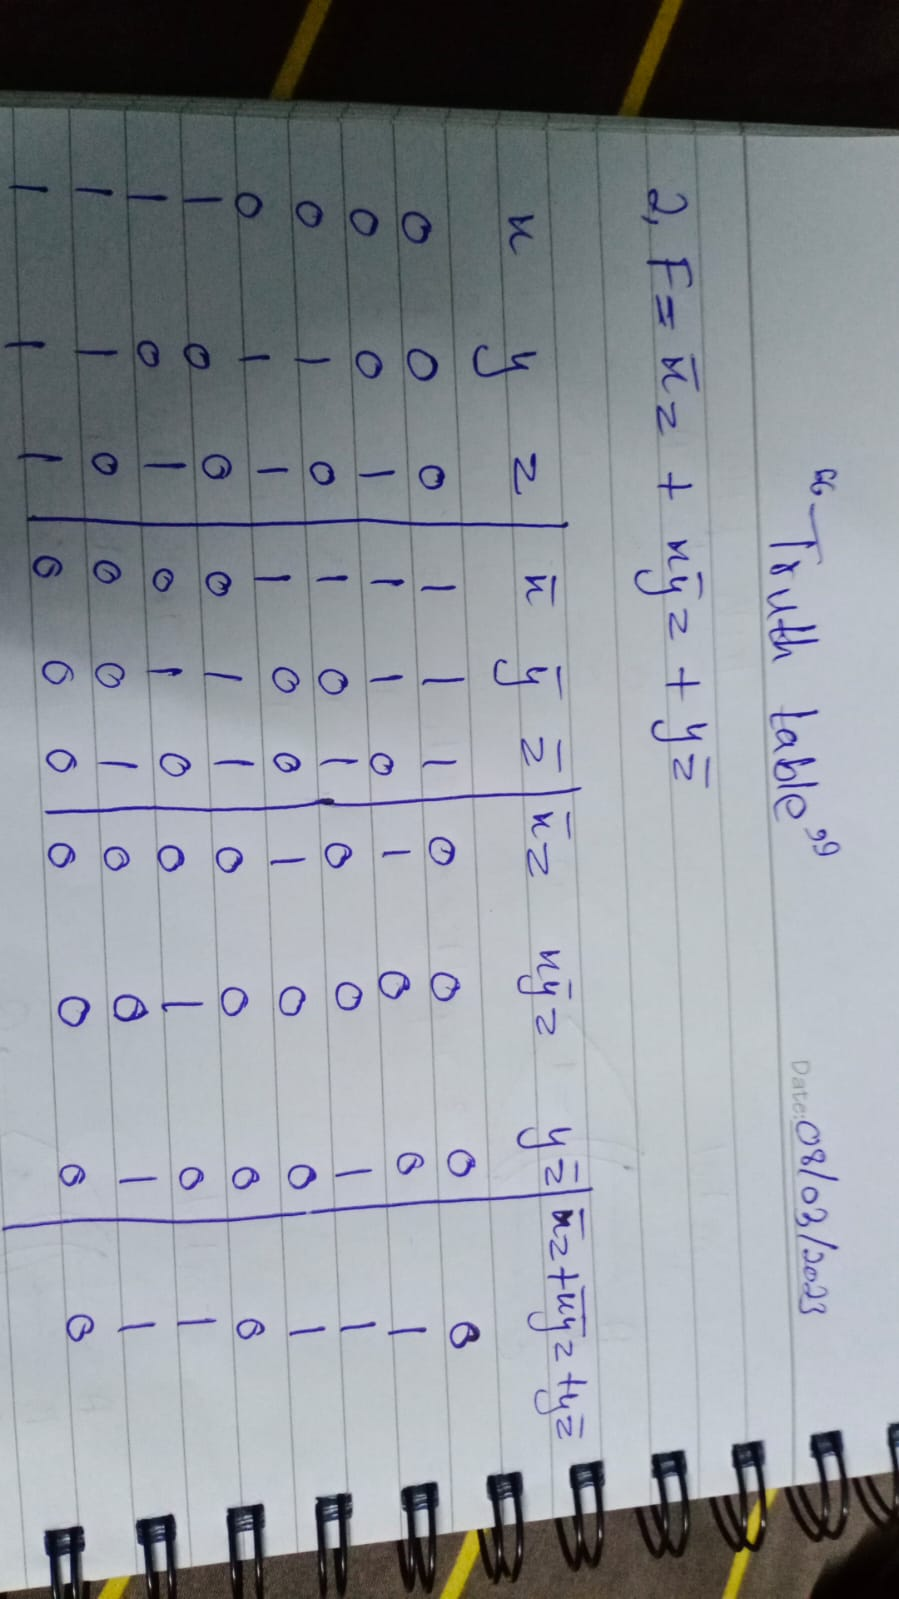 Date: 08/03/2023
"Truth table"
2, F = x̄z + xȳz + yz̄
x y z x̄ ȳ z̄ x̄z xȳz yz̄ x̄z+xȳz+yz̄
0 0 0 1 1 1 0 0 0 0
0 0 1 1 1 0 1 0 0 1
0 1 0 1 0 1 0 0 1 1
0 1 1 1 0 0 1 0 0 1
1 0 0 0 1 1 0 0 0 0
1 0 1 0 1 0 0 1 0 1
1 1 0 0 0 1 0 0 1 1
1 1 1 0 0 0 0 0 0 0